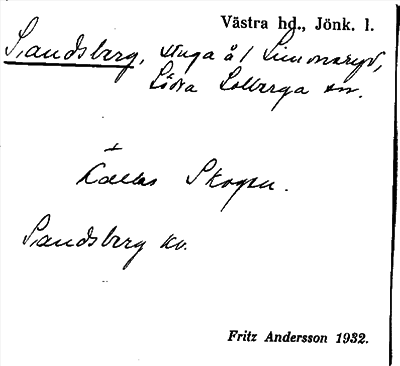 Västra hd., Jönk. l.
Sandsberg, stuga å 1 Simonsryd,
Södra Solberga sn.
Kallas Skogen.
Sandsberg kv.
Fritz Andersson 1932.